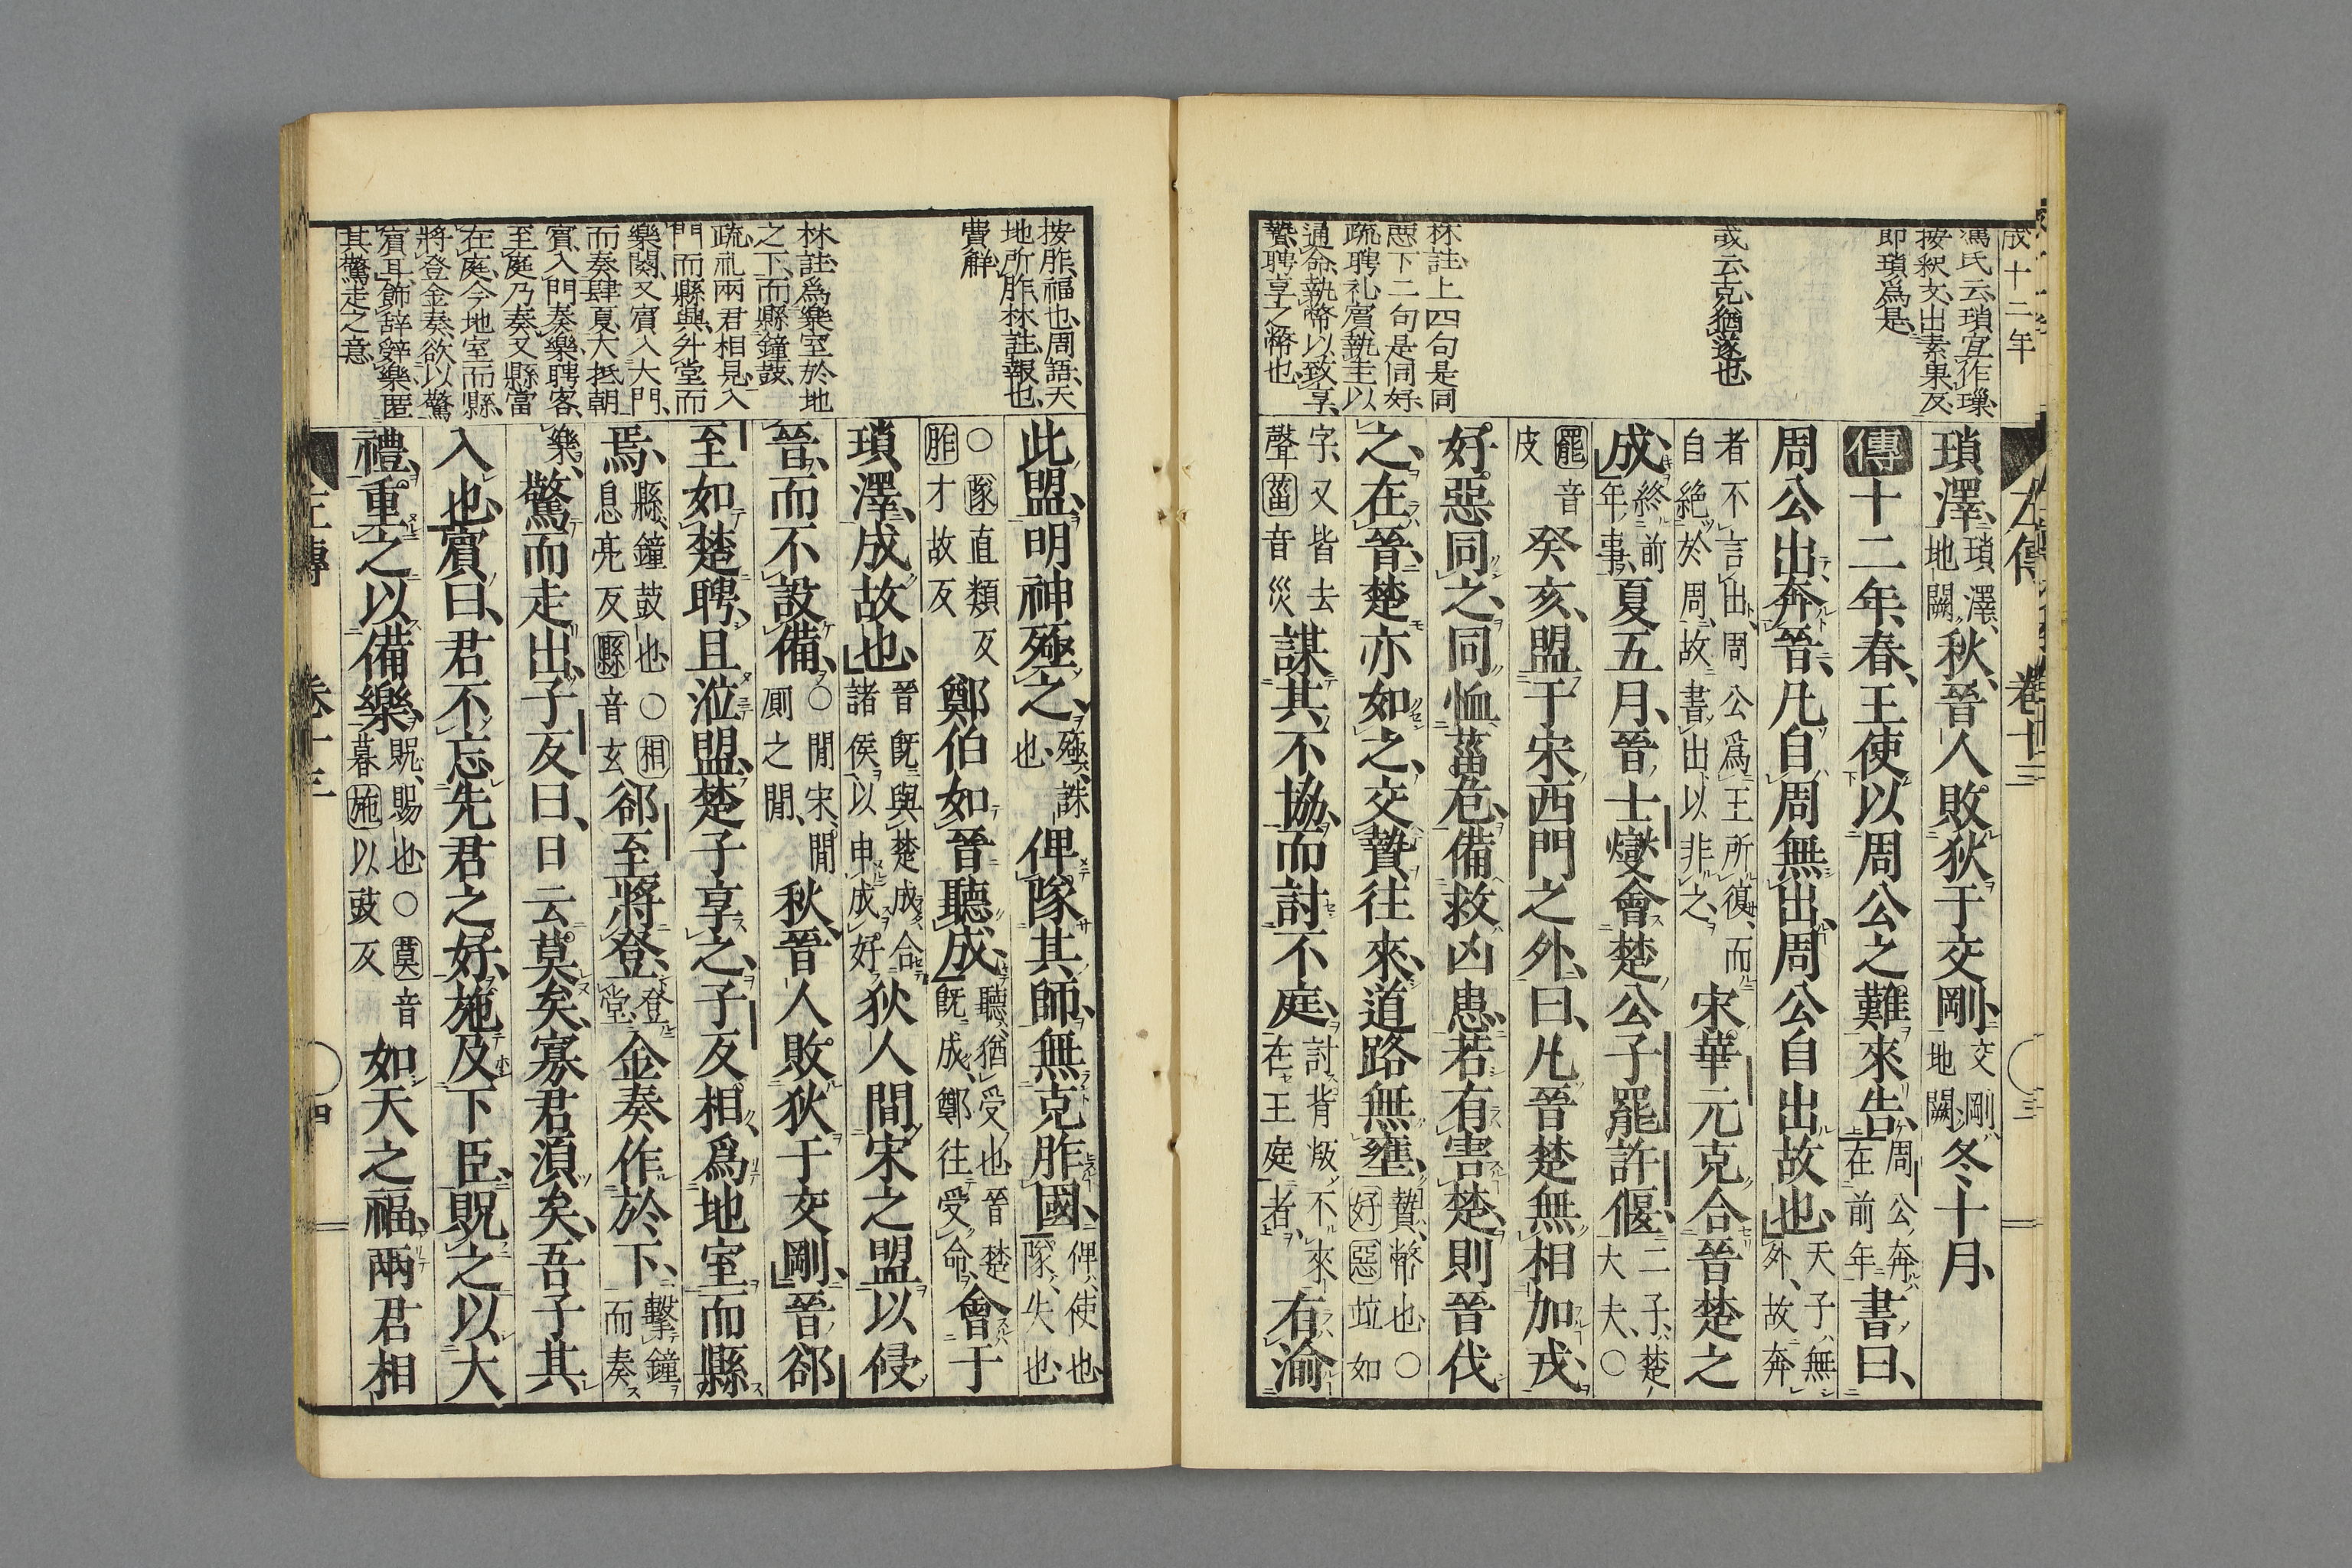 成十二年
馮氏云瑣宜作璅
按釈文出素果反
即瑣爲是
或云克猶遂也
林註上四句是同
惡下二句是同好
疏聘礼賓執圭以
通命執幣以致享
贄聘享之幣也
瑣澤瑣澤地闕秋晉人敗狄于交剛交剛地闕冬十月
傳十二年春王使以周公之難來告周公奔在前年書曰
周公出奔晉凡自周無出周公自出故也天子無外故奔
者不言出周公爲王所復而自絶於周故書出以非之宋華元克合晉楚之
成終前年事夏五月晉士燮會楚公子罷許偃二子楚大夫○
罷音皮癸亥盟于宋西門之外曰凡晉楚無相加戎
好惡同之同恤菑危備救凶患若有害楚則晉伐
之在晉楚亦如之交贄往來道路無壅贄幣也○好惡竝如
字又皆去聲菑音災謀其不協而討不庭討背叛不來在王庭者有渝
左傳 卷十三 三
按胙福也周語天
地所胙林註報也
費解
林註爲樂室於地
之下而縣鐘鼓
疏礼兩君相見入
門而縣興升堂而
樂闋又賓入大門
而奏肆夏大抵朝
賓入門奏樂聘客
至庭乃奏又縣當
在庭今地室而縣
將登金奏欲以驚
賓耳飾辞辭樂匿
其驚走之意
此盟明神殛之殛誅也俾隊其師無克胙國俾使也隊失也
○隊直類反胙才故反鄭伯如晉聽成聽猶受也晉楚既成鄭往受命會于
瑣澤成故也晉既與楚成合諸侯以申成好狄人間宋之盟以侵
晉而不設備○間宋間厠之間秋晉人敗狄于交剛晉郤
至如楚聘且涖盟楚子享之子反相爲地室而縣
焉縣鐘鼓也○相息亮反縣音玄郤至將登登堂金奏作於下擊鐘而奏
樂驚而走出子反曰日云莫矣寡君須矣吾子其
入也賓曰君不忘先君之好施及下臣貺之以大
禮重之以備樂貺賜也○莫音暮施以豉反如天之福兩君相
左傳 卷十三 四